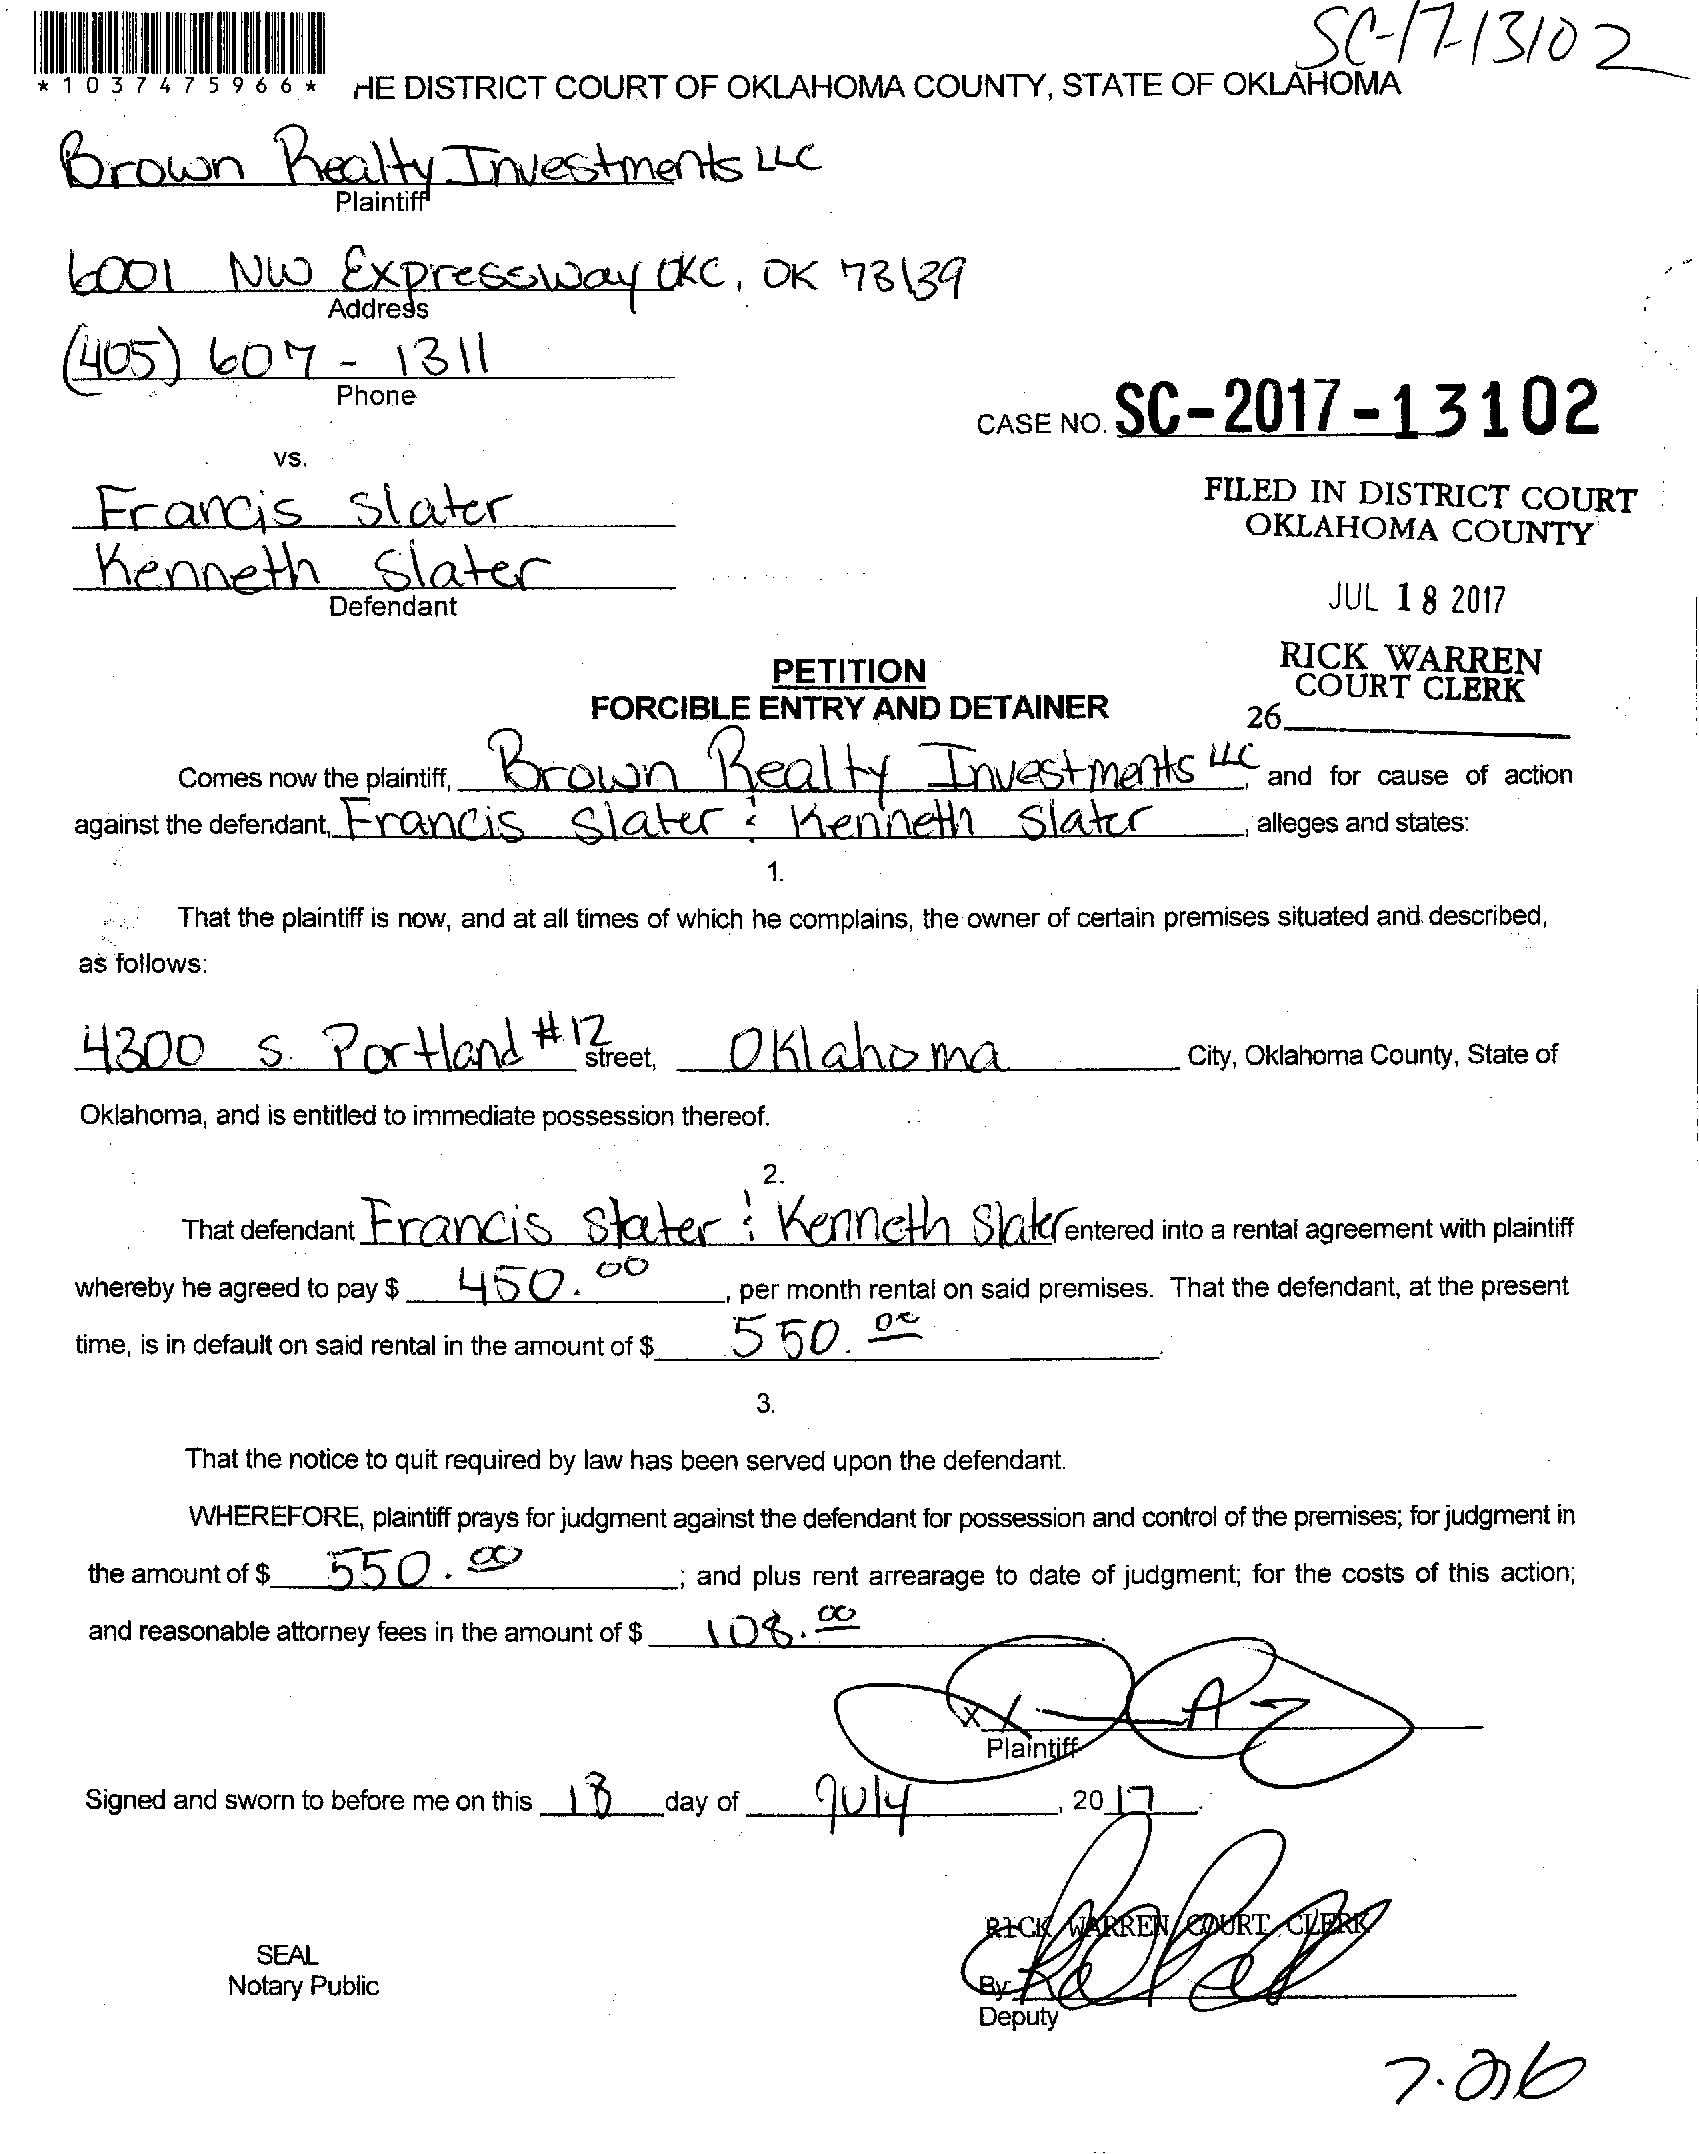 SC-17-13102
*1037475966*
HE DISTRICT COURT OF OKLAHOMA COUNTY, STATE OF OKLAHOMA
Brown Realty Investments LLC
Plaintiff
6001 NW Expressway OKC, OK 73139
Address
(405) 607-1311
Phone
CASE NO. SC-2017-13102
vs.
FILED IN DISTRICT COURT
OKLAHOMA COUNTY
Francis Slater
Kenneth Slater
Defendant
JUL 18 2017
RICK WARREN
COURT CLERK
26
PETITION
FORCIBLE ENTRY AND DETAINER
Comes now the plaintiff, Brown Realty Investments LLC, and for cause of action
against the defendant, Francis Slater & Kenneth Slater, alleges and states:
1.
That the plaintiff is now, and at all times of which he complains, the owner of certain premises situated and described,
as follows:
4300 S. Portland #12 street, Oklahoma City, Oklahoma County, State of
Oklahoma, and is entitled to immediate possession thereof.
2.
That defendant Francis Slater & Kenneth Slater entered into a rental agreement with plaintiff
whereby he agreed to pay $ 450.00, per month rental on said premises. That the defendant, at the present
time, is in default on said rental in the amount of $ 550.00.
3.
That the notice to quit required by law has been served upon the defendant.
WHEREFORE, plaintiff prays for judgment against the defendant for possession and control of the premises; for judgment in
the amount of $ 550.00; and plus rent arrearage to date of judgment; for the costs of this action;
and reasonable attorney fees in the amount of $ 108.00
X
Plaintiff
Signed and sworn to before me on this 18 day of July, 2017.
RICK WARREN COURT CLERK
SEAL
Notary Public
By
Deputy
7.26